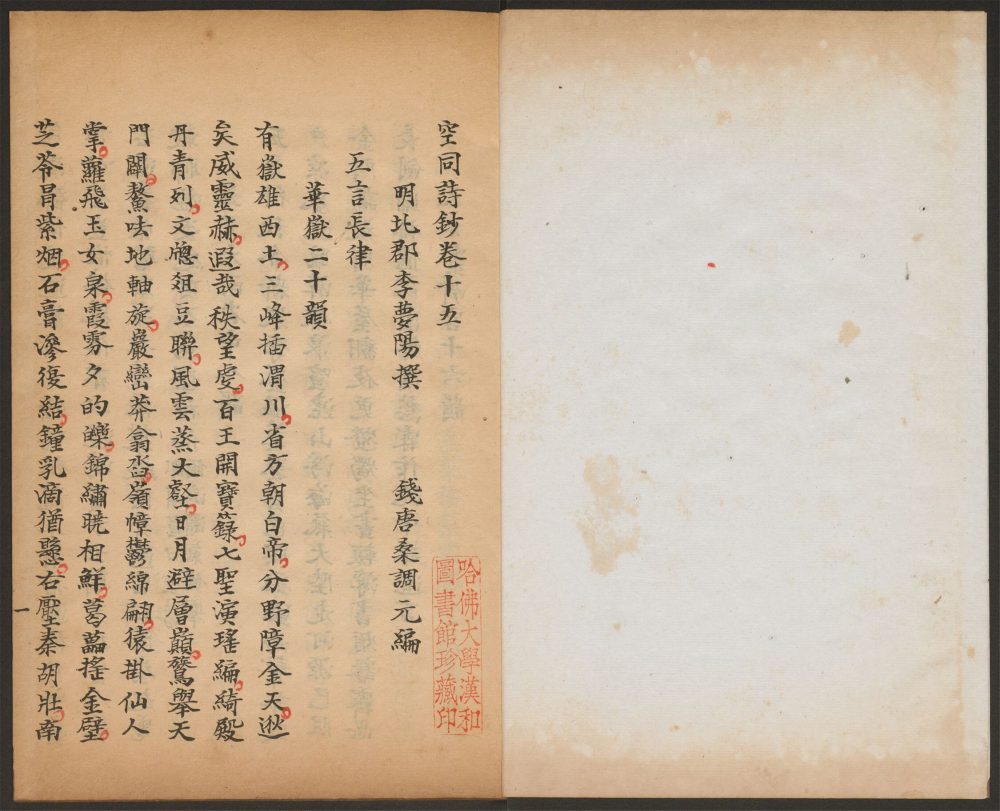 空同詩鈔卷十五
明北郡李夢陽撰 錢唐桑調元編
五言長律
華嶽二十韻
有嶽雄西土三峰插渭川省方朝白帝分野障金天逖
矣威靈赫遐哉秩望虔百王開寶籙七聖演瑤編綺殿
丹青列文牕俎豆聯風雲蒸大壑日月避層巔鷲舉天
門闢鰲呿地軸旋巖巒莽翕沓嶺幛鬱綿翩猿掛仙人
掌蘿飛玉女泉霞雰夕的皪錦繡曉相鮮葛藟搖金壁
芝苓冒紫烟石膏滲復結鐘乳滴猶懸右壓秦胡壯南
一
哈佛大學漢和
圖書館珍藏印